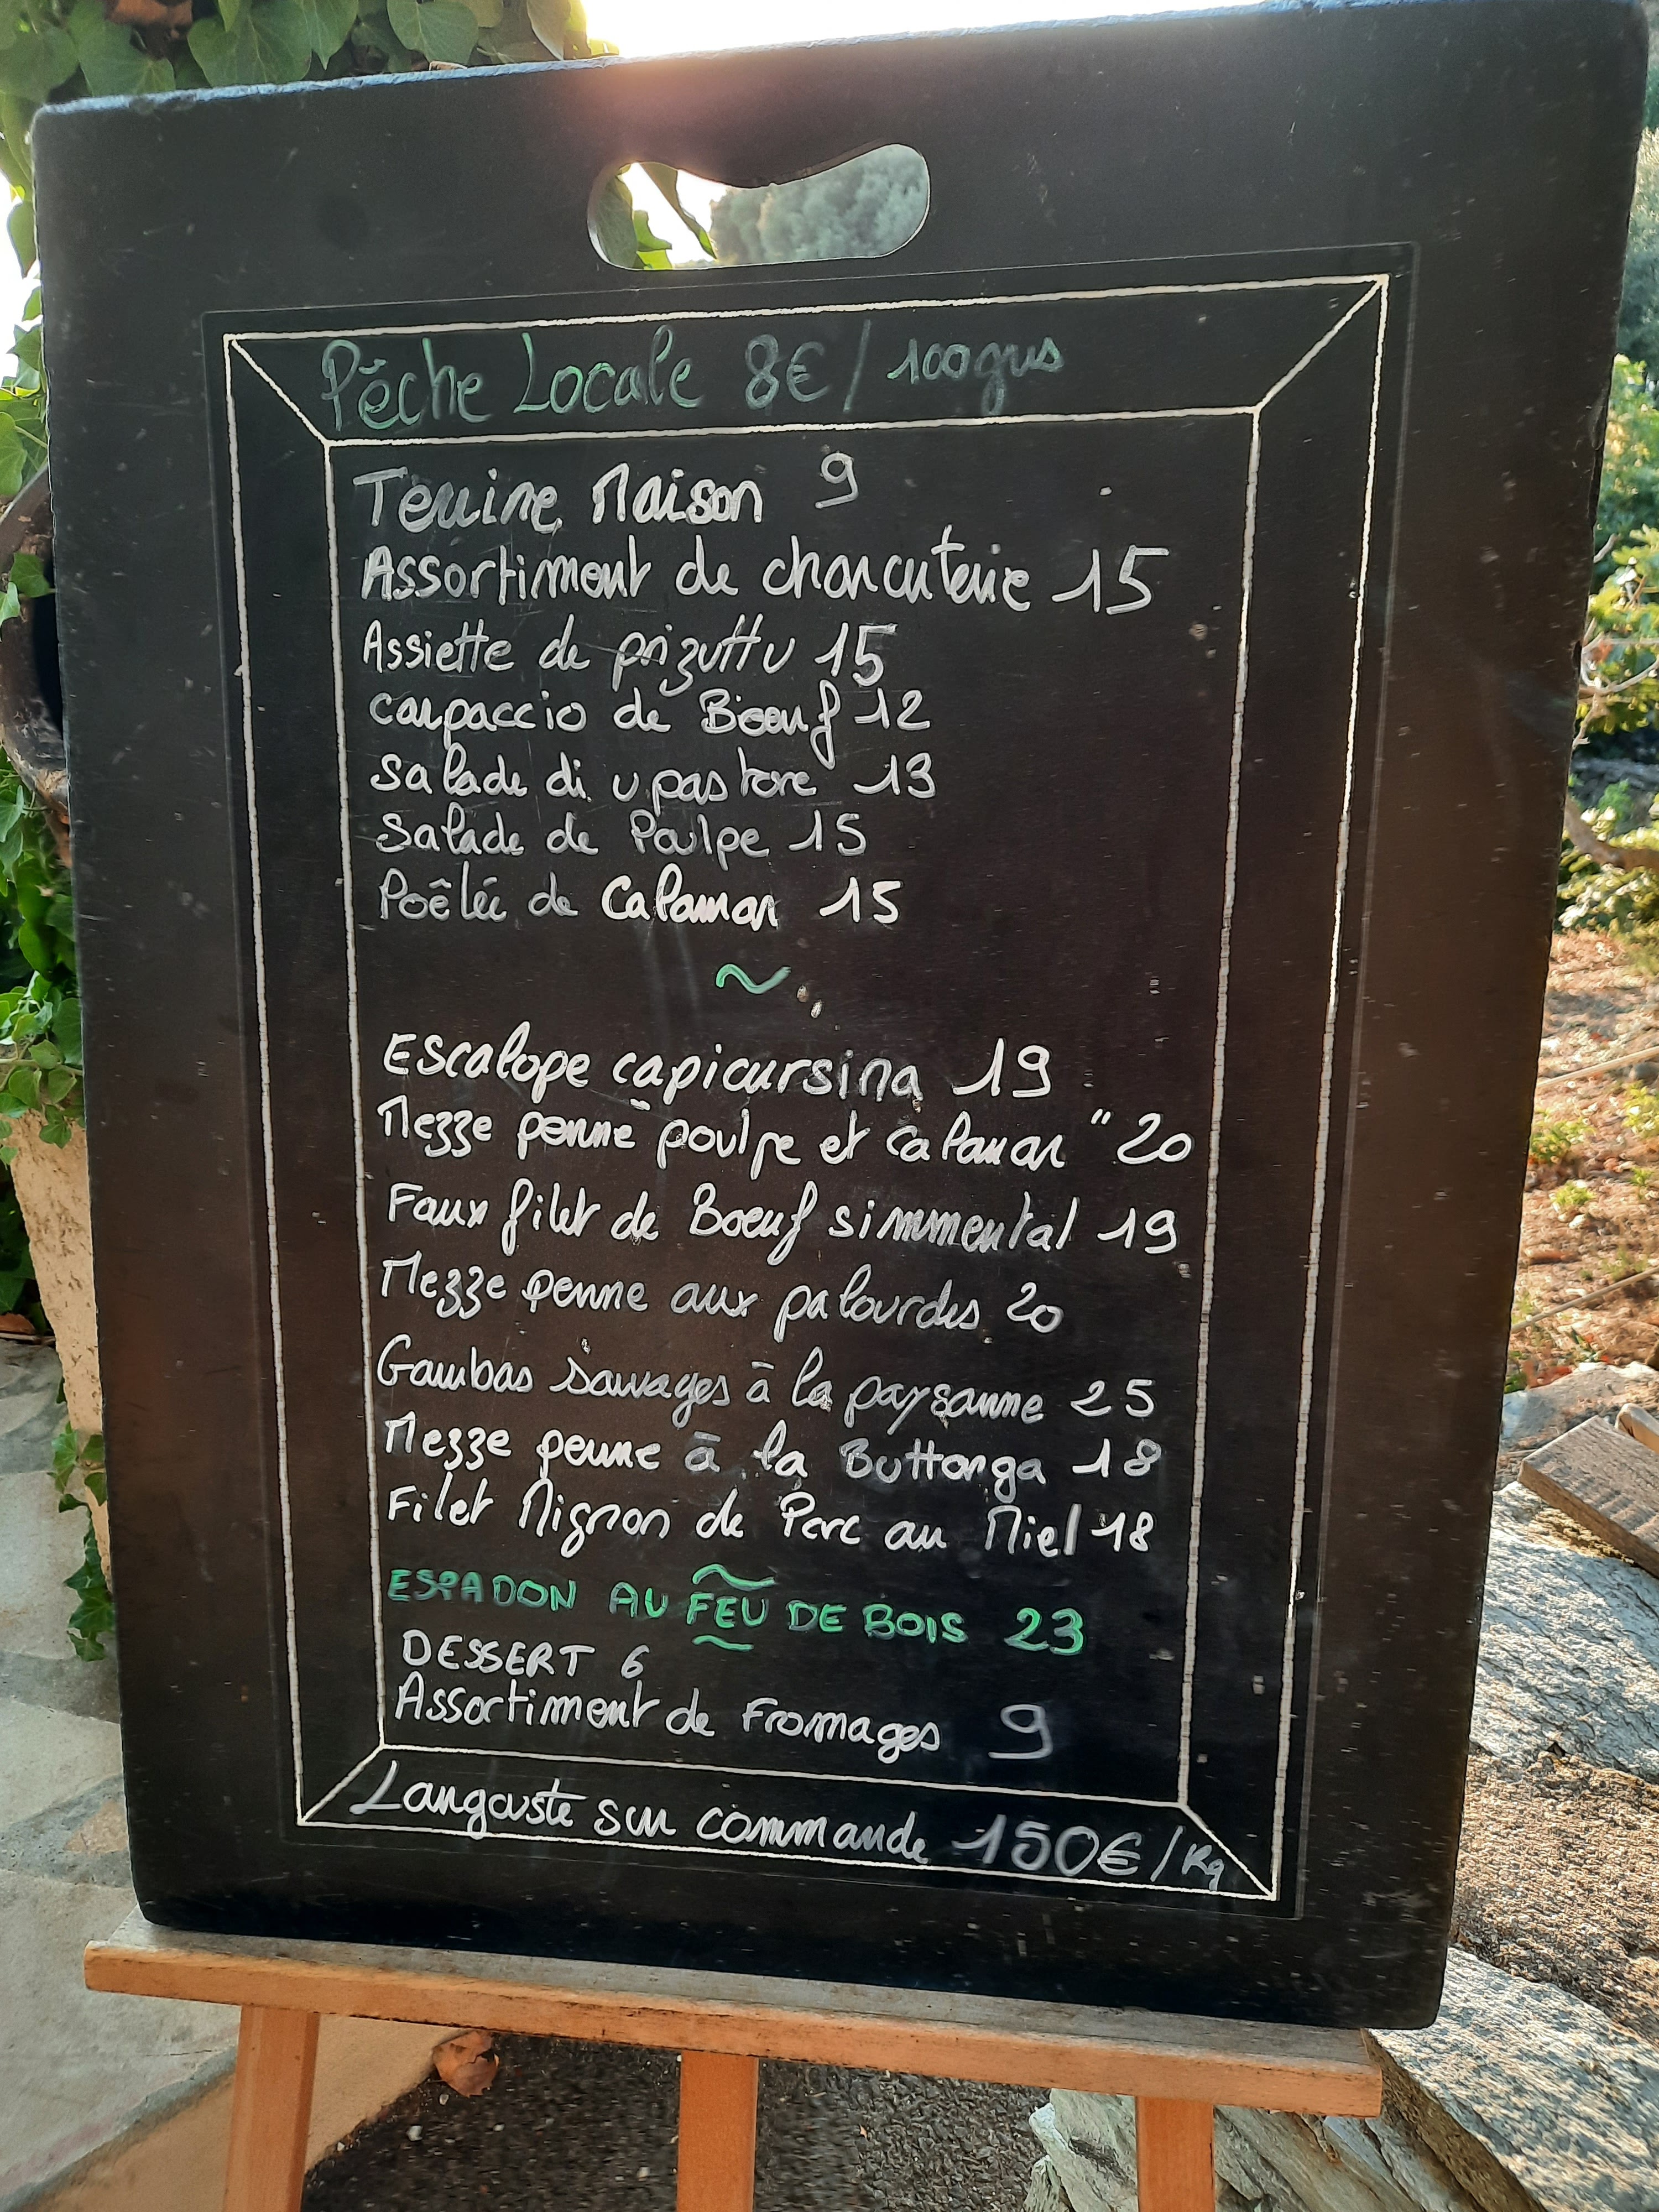 Pêche Locale 8€/100grs
Terrine Maison 9
Assortiment de charcuterie 15
Assiette de prizuttu 15
carpaccio de Boeuf 12
Salade di u pastore 13
Salade de Poulpe 15
Poêlée de Calamar 15
~
Escalope capicursina 19
Mezze penne "poulpe et calamar" 20
Faux filet de Boeuf simmental 19
Mezze penne aux palourdes 20
Gambas sauvages à la paysanne 25
Mezze penne à la Buttarga 18
Filet Mignon de Porc au Miel 18
~
ESPADON AU FEU DE BOIS 23
~
DESSERT 6
Assortiment de Fromages 9
Langouste sur commande 150€/Kg